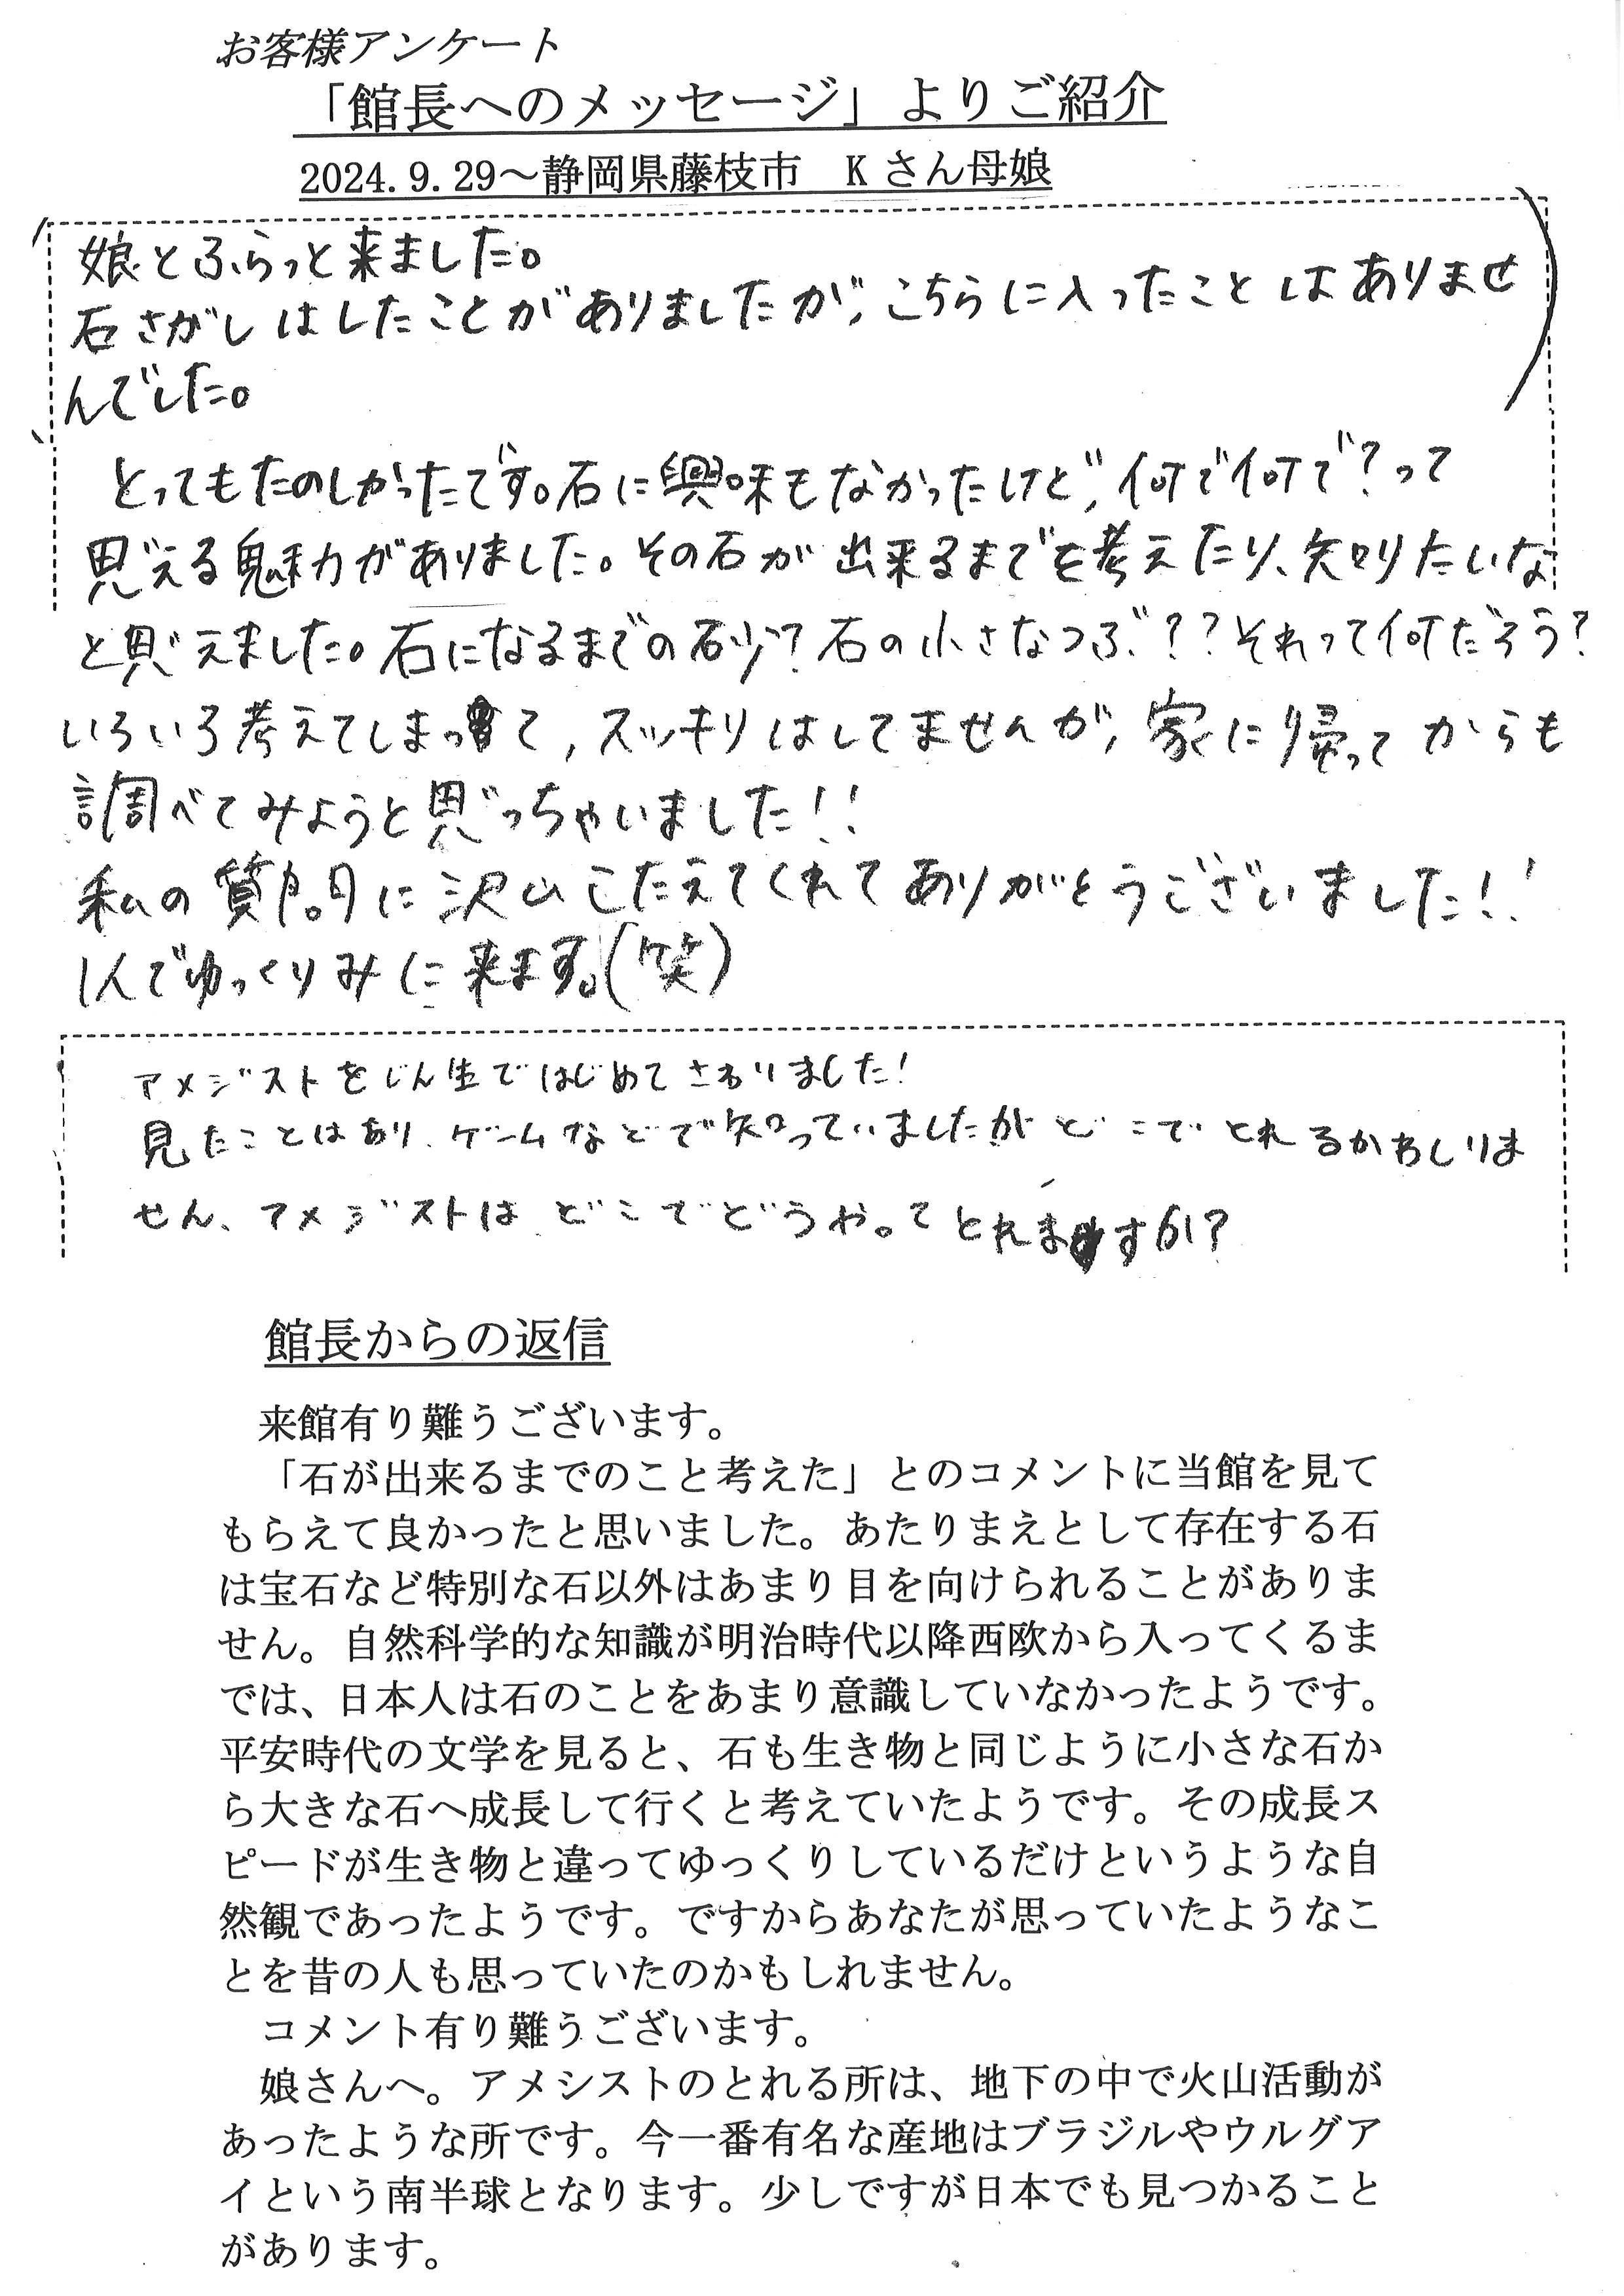 お客様アンケート
「館長へのメッセージ」よりご紹介
2024.9.29～静岡県藤枝市　Kさん母娘
娘とふらっと来ました。
石さがしはしたことがありましたが、こちらに入ったことはありませ
んでした。
とってもたのしかったです。石に興味もなかったけど、何で何で?って
思える魅力がありました。その石が出来るまでを考えたり、知りたいな
と思えました。石になるまでの砂?石の小さなつぶ??それって何だろう?
いろいろ考えてしまって、スッキリはしてませんが、家に帰ってからも
調べてみようと思っちゃいました!!
私の質問に沢山こたえてくれてありがとうございました!!
1人でゆっくりみに来ます。(笑)
アメジストをじん生ではじめてさわりました!
見たことはあり、ゲームなどで知っていましたがどこでとれるかわしりま
せん、アメジストはどこでどうやってとれますか?
館長からの返信
来館有り難うございます。
「石が出来るまでのこと考えた」とのコメントに当館を見て
もらえて良かったと思いました。あたりまえとして存在する石
は宝石など特別な石以外はあまり目を向けられることがありま
せん。自然科学的な知識が明治時代以降西欧から入ってくるま
では、日本人は石のことをあまり意識していなかったようです。
平安時代の文学を見ると、石も生き物と同じように小さな石か
ら大きな石へ成長して行くと考えていたようです。その成長ス
ピードが生き物と違ってゆっくりしているだけというような自
然観であったようです。ですからあなたが思っていたようなこ
とを昔の人も思っていたのかもしれません。
コメント有り難うございます。
娘さんへ。アメシストのとれる所は、地下の中で火山活動が
あったような所です。今一番有名な産地はブラジルやウルグア
イという南半球となります。少しですが日本でも見つかること
があります。